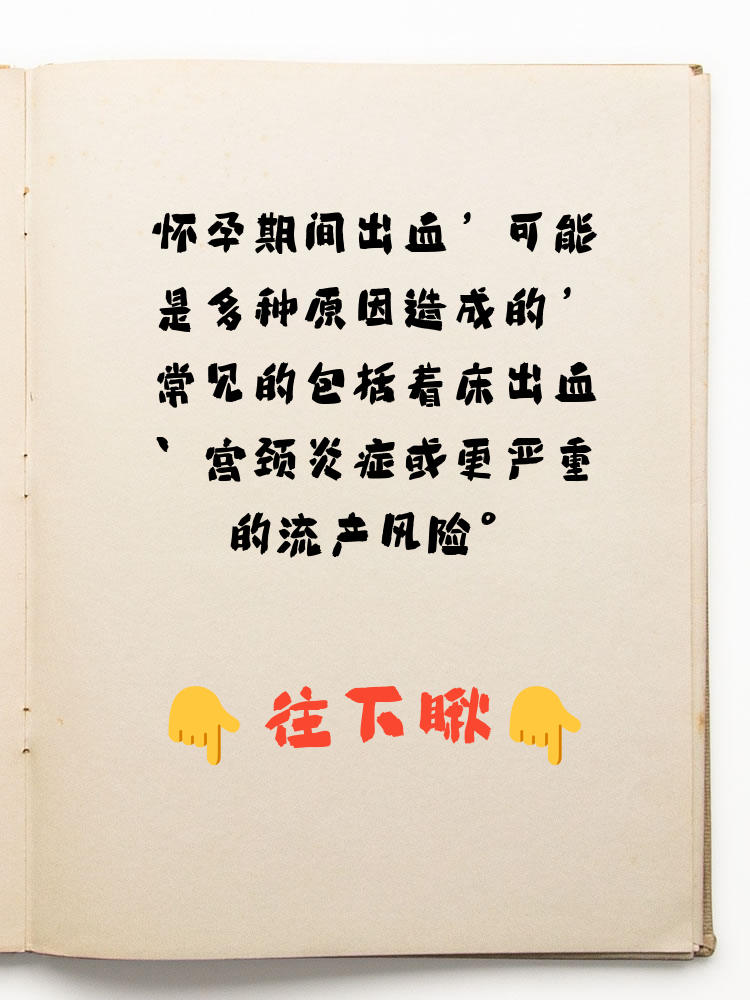 怀孕期间出血，可能
是多种原因造成的，
常见的包括着床出血
、宫颈炎症或更严重
的流产风险。
👇往下瞅👇